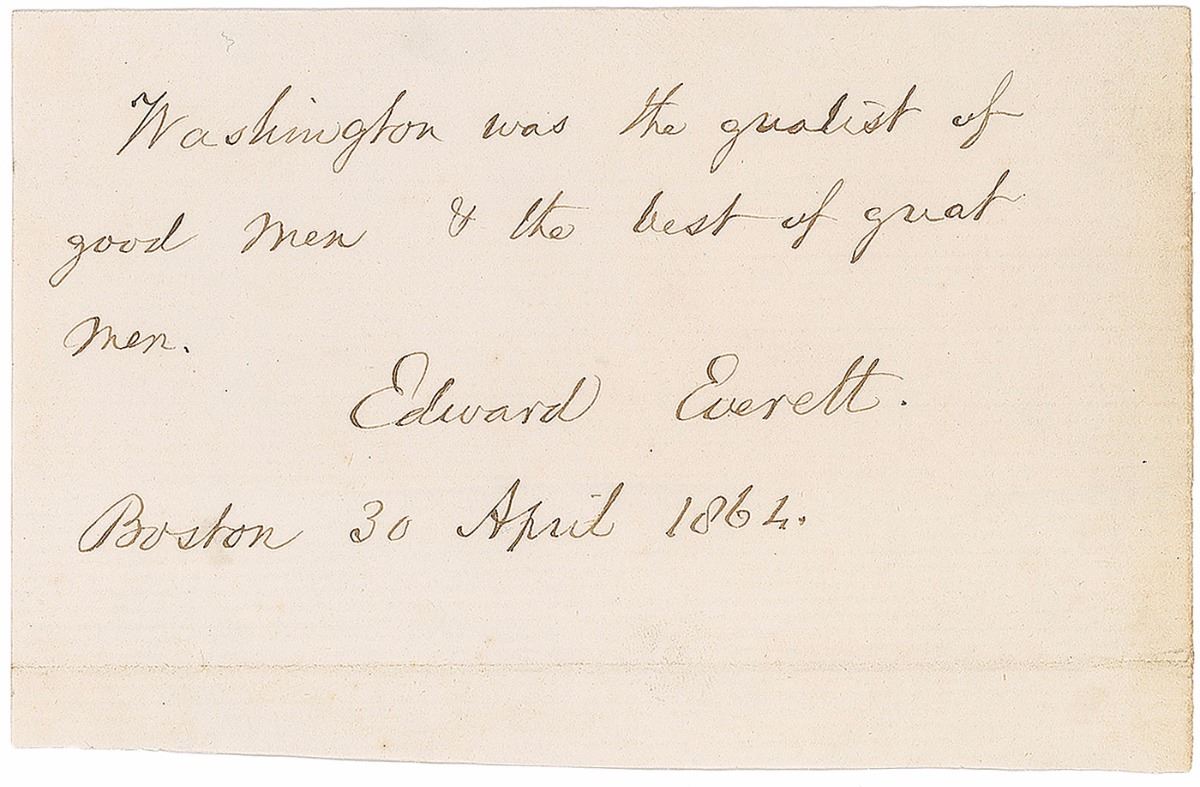 Washington was the greatest of
good men & the best of great
men.
Edward Everett.
Boston 30 April 1862.